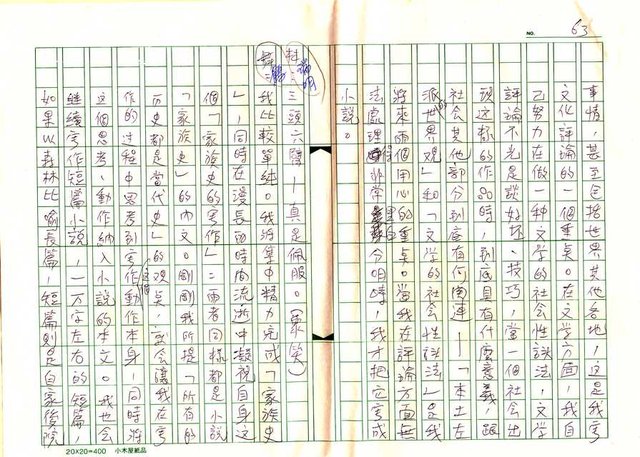 63
NO.
事情，甚至包括世界其他各地，這是我寫
文化評論的一個重點。在文學方面，我自
己努力在做的一種文學的社會性談法，文學
評論不光是談好壞、技巧，當一個社會出
現這樣的作品時，到底具有什麼意義，跟
社會其他部分到底有何關連——「本土左
派的世界觀」和「文學的社會性談法」是我在
將來兩個用心的重點。當我在評論方面無
法處理非常時，我才把它寫成
小說。
林瑞明：
三頭六臂——真是佩服。（眾笑）
舞鶴：
我比較單純。我將集中精力完成「家族史
」，同時在漫長的時間流逝中凝視自身這
個「家族史的寫作」。兩者同樣都是小說
「家族史」的內文。剛剛我所提「所有的
歷史都是當代史」的觀點，它會讓我在寫
作的過程中思考到寫作這個動作本身，同時將
這個思考、動作納入小說的本文。我也會
繼續寫作短篇小說，一萬字左右的短篇，
如果以森林比喻長篇，短篇則是自家後院
20×20=400 小木屋紙品